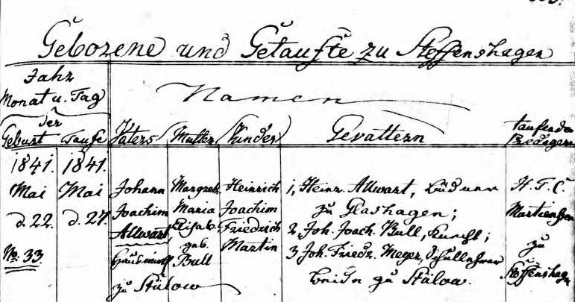 Geborene und Getaufte zu Steffenshagen
Jahr
Monat u. Tag
der
Namen
Geburt Taufe Vaters Mutter Kinder Gevattern taufenden Predigers
1841. 1841.
Mai Mai Johann Margreth Heinrich 1, Heinr. Allwart, H. F. C.
d. 22. d. 27. Joachim Maria Joachim zu Glashagen; Martienssen
Allwart Elisab. Friedrich 2 Joh. Joach. Bull, Knecht; zu
No. 33 geb. Martin 3 Joh. Friedr. Meyer, Schullehrer Steffenshagen
zu Stülow Bull beide zu Stülow